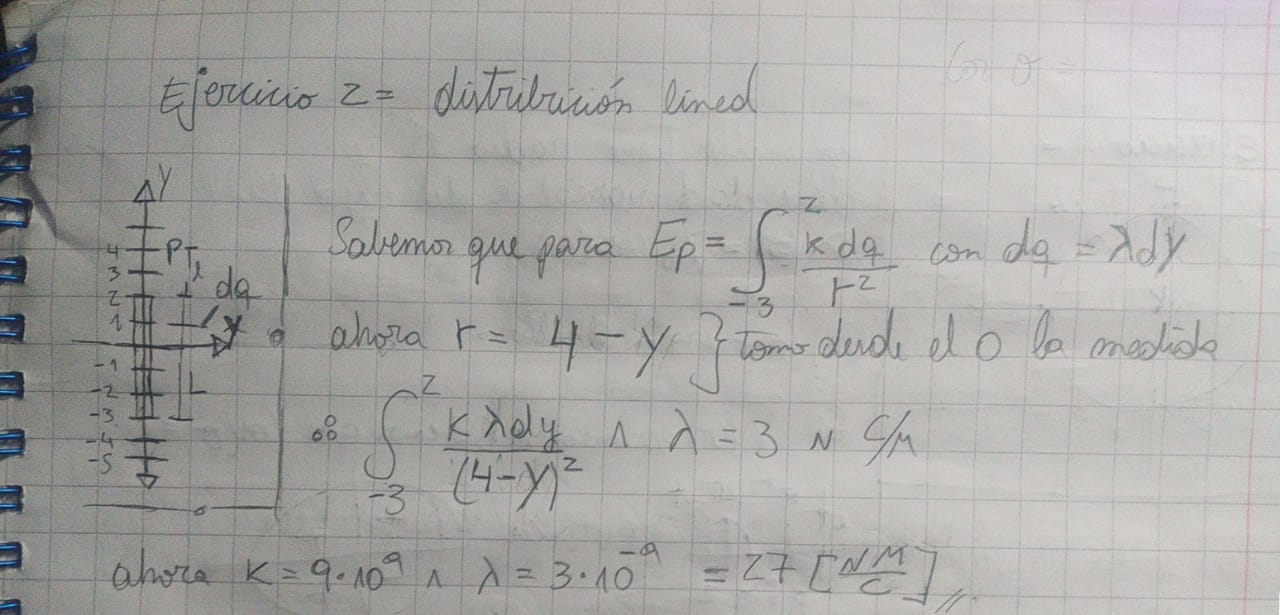 Ejercicio 2 = distribución lineal
Y
4
3
2
1
-1
-2
-3
-4
-5
P
l
dq
x
L
Sabemos que para Ep = ∫_{-3}^{2} k dq / r² con dq = λdy
ahora r = 4 - y } tomo desde el 0 la medida
∴ ∫_{-3}^{2} k λ dy / (4-y)² ∧ λ = 3 n C/M
ahora K = 9·10⁹ ∧ λ = 3·10⁻⁹ = 27 [NM/C]